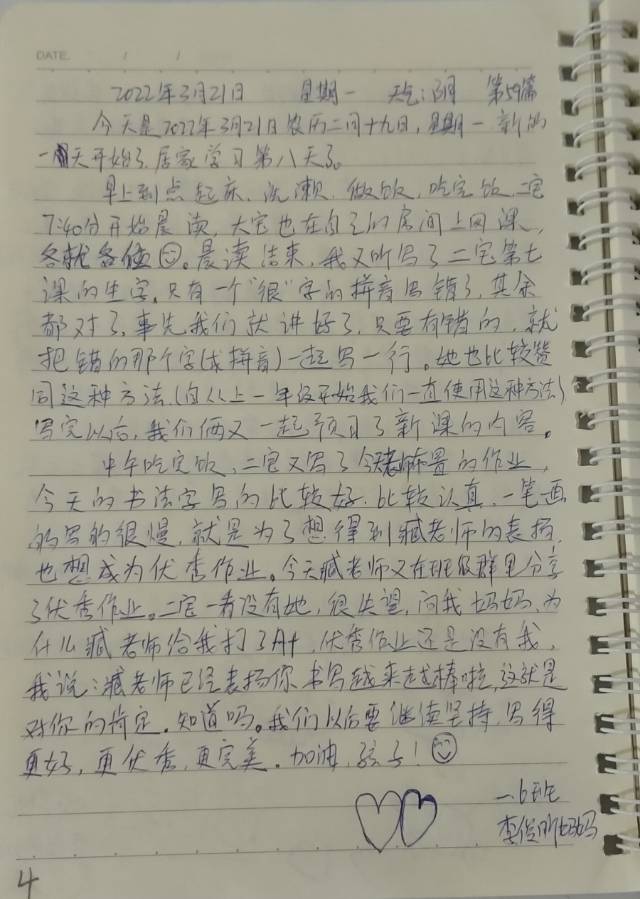 DATE. / /
2022年3月21日 星期一 天气:阴 第59篇
今天是2022年3月21日农历二月十九日,星期一新的
一天开始了,居家学习第八天了。
早上到点起床、洗漱、做饭,吃完饭,二宝
7:40分开始晨读,大宝也在自己的房间上网课,
各就各位☺。晨读结束,我又听写了二宝第七
课的生字,只有一个“很”字的拼音写错了,其余
都对了,事先我们就讲好了,只要有错的,就
把错的那个字(或拼音)一起写一行。她也比较赞
同这种方法(自从上一年级开始我们一直使用这种方法)
写完以后,我们俩又一起预习了新课的内容。
中午吃完饭,二宝又写了今天老师布置的作业,
今天的书法字写的比较好,比较认真,一笔一画
的写的很慢,就是为了想得到臧老师的表扬,
也想成为优秀作业。今天臧老师又在班级群里分享
了优秀作业。二宝一看没有她,很失望,问我妈妈,为
什么臧老师给我打了A+,优秀作业还是没有我,
我说:臧老师已经表扬你书写越来越棒啦,这就是
对你的肯定,知道吗。我们以后要继续坚持,写得
更好,更优秀,更完美。加油,孩子!☺
一.6班
李俊昕妈妈
4